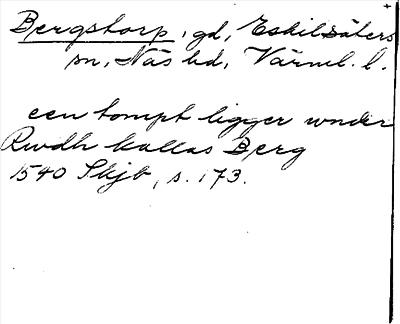 Bergstorp, gd, Eskilsäters
sn, Näs hd, Värml. l.
een tompt ligger wnder
Rwdh kallas Berg
1540 Skjb, s. 173.